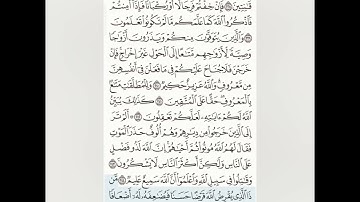 قَٰنِتِينَ ۝ فَإِنْ خِفْتُمْ فَرِجَالًا أَوْ رُكْبَانًا فَإِذَآ أَمِنتُمْ
فَٱذْكُرُوا۟ ٱللَّهَ كَمَا عَلَّمَكُم مَّا لَمْ تَكُونُوا۟ تَعْلَمُونَ
۝ وَٱلَّذِينَ يُتَوَفَّوْنَ مِنكُمْ وَيَذَرُونَ أَزْوَٰجًا
وَصِيَّةً لِّأَزْوَٰجِهِم مَّتَٰعًا إِلَى ٱلْحَوْلِ غَيْرَ إِخْرَاجٍ فَإِنْ
خَرَجْنَ فَلَا جُنَاحَ عَلَيْكُمْ فِى مَا فَعَلْنَ فِىٓ أَنفُسِهِنَّ
مِن مَّعْرُوفٍ وَٱللَّهُ عَزِيزٌ حَكِيمٌ ۝ وَلِلْمُطَلَّقَٰتِ مَتَٰعٌۢ
بِٱلْمَعْرُوفِ حَقًّا عَلَى ٱلْمُتَّقِينَ ۝ كَذَٰلِكَ يُبَيِّنُ
ٱللَّهُ لَكُمْ ءَايَٰتِهِۦ لَعَلَّكُمْ تَعْقِلُونَ ۝ ۞ أَلَمْ تَرَ
إِلَى ٱلَّذِينَ خَرَجُوا۟ مِن دِيَٰرِهِمْ وَهُمْ أُلُوفٌ حَذَرَ ٱلْمَوْتِ
فَقَالَ لَهُمُ ٱللَّهُ مُوتُوا۟ ثُمَّ أَحْيَٰهُمْ إِنَّ ٱللَّهَ لَذُو فَضْلٍ
عَلَى ٱلنَّاسِ وَلَٰكِنَّ أَكْثَرَ ٱلنَّاسِ لَا يَشْكُرُونَ ۝
وَقَٰتِلُوا۟ فِى سَبِيلِ ٱللَّهِ وَٱعْلَمُوٓا۟ أَنَّ ٱللَّهَ سَمِيعٌ عَلِيمٌ ۝ مَّن
ذَا ٱلَّذِى يُقْرِضُ ٱللَّهَ قَرْضًا حَسَنًا فَيُضَٰعِفَهُۥ لَهُۥٓ أَضْعَافًا